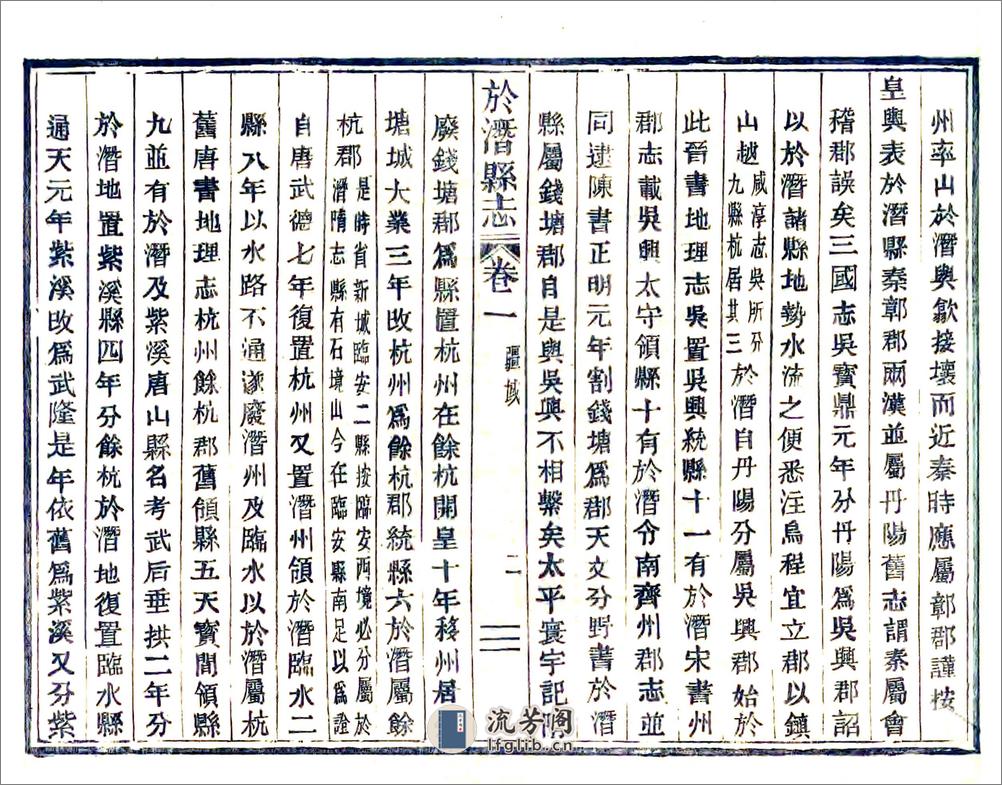 州率山於潛與歙接壤而近秦時應屬鄣郡謹按
皇輿表於潛縣秦鄣郡兩漢並屬丹陽舊志謂秦屬會
稽郡誤矣三國志吳寶鼎元年分丹陽爲吳興郡詔
以於潛諸縣地勢水流之便悉注烏程宜立郡以鎮
山越咸淳志吳所分九縣杭居其三於潛自丹陽分屬吳興郡始於
此晉書地理志吳置吳興統縣十一有於潛宋書州
郡志載吳興太守領縣十有於潛令南齊州郡志並
同逮陳書正明元年割錢塘爲郡天文分野書於潛
縣屬錢塘郡自是與吳興不相繫矣太平寰宇記隋
於潛縣志 卷一 疆域 二
廢錢塘郡爲縣置杭州在餘杭開皇十年移州居
塘城大業三年改杭州爲餘杭郡統縣六於潛屬餘
杭郡是時省新城臨安二縣按臨安西境必分屬於潛隋志縣有石境山今在臨安縣南足以爲證
自唐武德七年復置杭州又置潛州領於潛臨水二
縣八年以水路不通遂廢潛州及臨水以於潛屬杭
舊唐書地理志杭州餘杭郡舊領縣五天寶間領縣
九並有於潛及紫溪唐山縣名考武后垂拱二年分
於潛地置紫溪縣四年分餘杭於潛地復置臨水縣
通天元年紫溪改爲武隆是年依舊爲紫溪又分紫
流芳阁
lfglib.cn